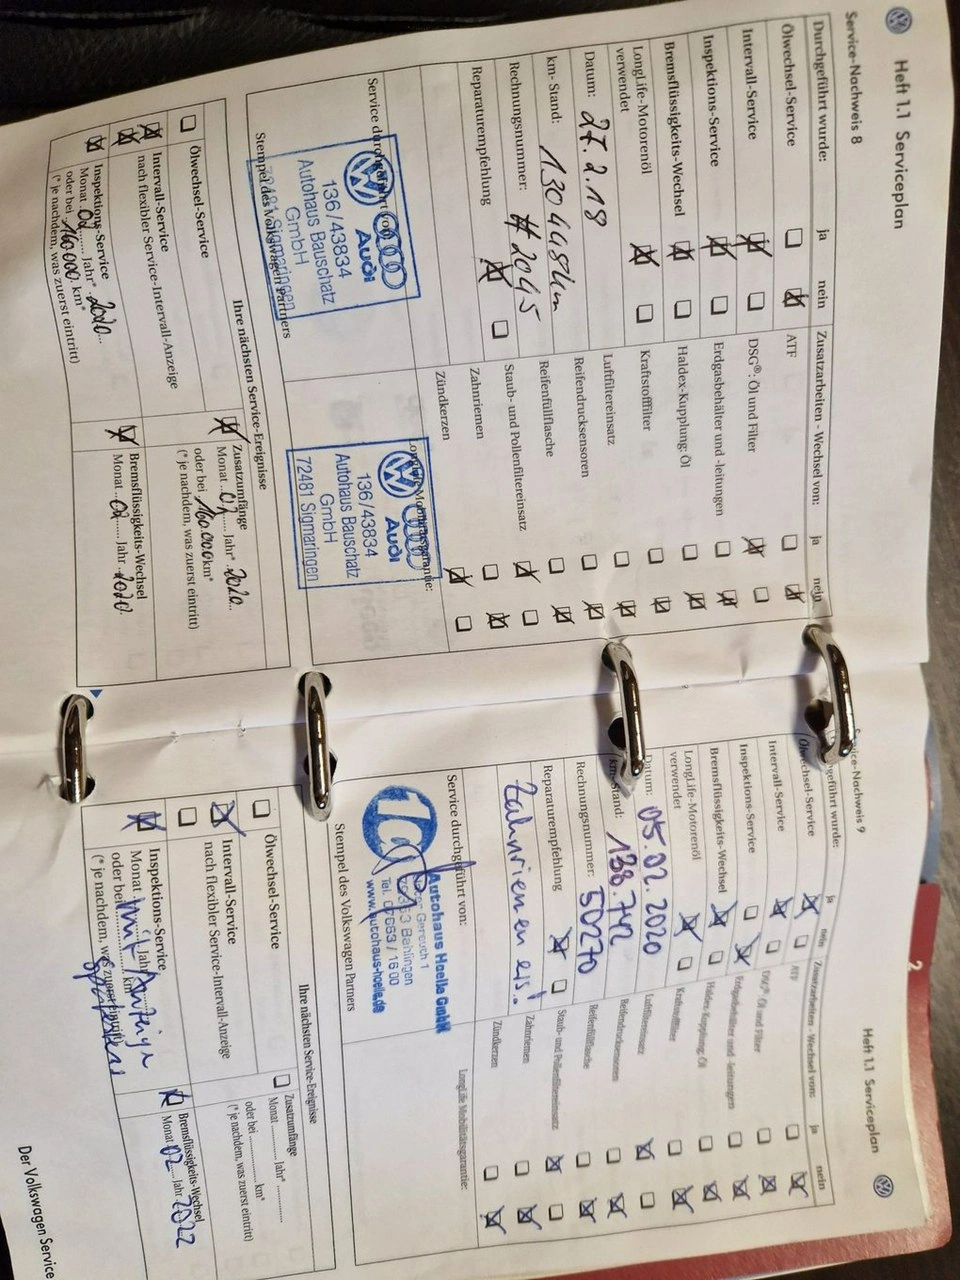 Heft 1.1 Serviceplan
Service-Nachweis 8
Durchgeführt wurde: ja nein
Ölwechsel-Service
Intervall-Service
Inspektions-Service
Bremsflüssigkeits-Wechsel
LongLife-Motorenöl
verwendet
Datum: 27.2.19
km-Stand: 130448km
Rechnungsnummer: #2045
Reparaturempfehlung
Zusatzarbeiten - Wechsel von: ja nein
ATF
DSG®: Öl und Filter
Erdgasbehälter und -leitungen
Haldex-Kupplung: Öl
Kraftstofffilter
Luftfiltereinsatz
Reifendrucksensoren
Reifenfüllflasche
Staub- und Pollenfiltereinsatz
Zahnriemen
Zündkerzen
Service durchgeführt von:
Audi
136/43834
Autohaus Bauschatz
GmbH
72481 Sigmaringen
Stempel des Volkswagen Partners
LongLife Mobilitätsgarantie:
Audi
136/43834
Autohaus Bauschatz
GmbH
72481 Sigmaringen
Ihre nächsten Service-Ereignisse
Ölwechsel-Service
Intervall-Service
nach flexibler Service-Intervall-Anzeige
Inspektions-Service
Monat 02 Jahr* 2020
oder bei 160.000 km*
(* je nachdem, was zuerst eintritt)
Zusatzumfänge
Monat 02 Jahr* 2020
oder bei 160.000 km*
(* je nachdem, was zuerst eintritt)
Bremsflüssigkeits-Wechsel
Monat 02 Jahr 2020
Heft 1.1 Serviceplan
Service-Nachweis 9
geführt wurde: ja nein
Ölwechsel-Service
Intervall-Service
Inspektions-Service
Bremsflüssigkeits-Wechsel
LongLife-Motorenöl
verwendet
Datum: 05.02.2020
km-Stand: 138.742
Rechnungsnummer: 50270
Reparaturempfehlung
Zahnriemen ers.!
Zusatzarbeiten - Wechsel von: ja nein
ATF
DSG®: Öl und Filter
Erdgasbehälter und -leitungen
Haldex-Kupplung: Öl
Kraftstofffilter
Luftfiltereinsatz
Reifendrucksensoren
Reifenfüllflasche
Staub- und Pollenfiltereinsatz
Zahnriemen
Zündkerzen
Service durchgeführt von:
Autohaus Hoelle GmbH
Gereuth 1
Bahlingen
Tel. 07663 / 16 00
www.autohaus-hoelle.de
Stempel des Volkswagen Partners
LongLife Mobilitätsgarantie:
Ihre nächsten Service-Ereignisse
Ölwechsel-Service
Intervall-Service
nach flexibler Service-Intervall-Anzeige
Inspektions-Service
Monat Jahr*
oder bei km*
mit Anzeige
(* je nachdem, was zuerst eintritt)
Zusatzumfänge
Monat Jahr*
oder bei km*
(* je nachdem, was zuerst eintritt)
Bremsflüssigkeits-Wechsel
Monat 02 Jahr 2022
Der Volkswagen Service
2